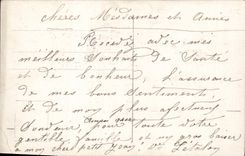 chères Mesdames et Amies
Recevez avec mes
meilleurs Souhaits de Santé
et de bonheur, l'assurance
de mes bons Sentiments
et de mon plus affectueux
Souvenir, pour toute votre
gentille famille et un gros baiser
à mon cher petit Jean,